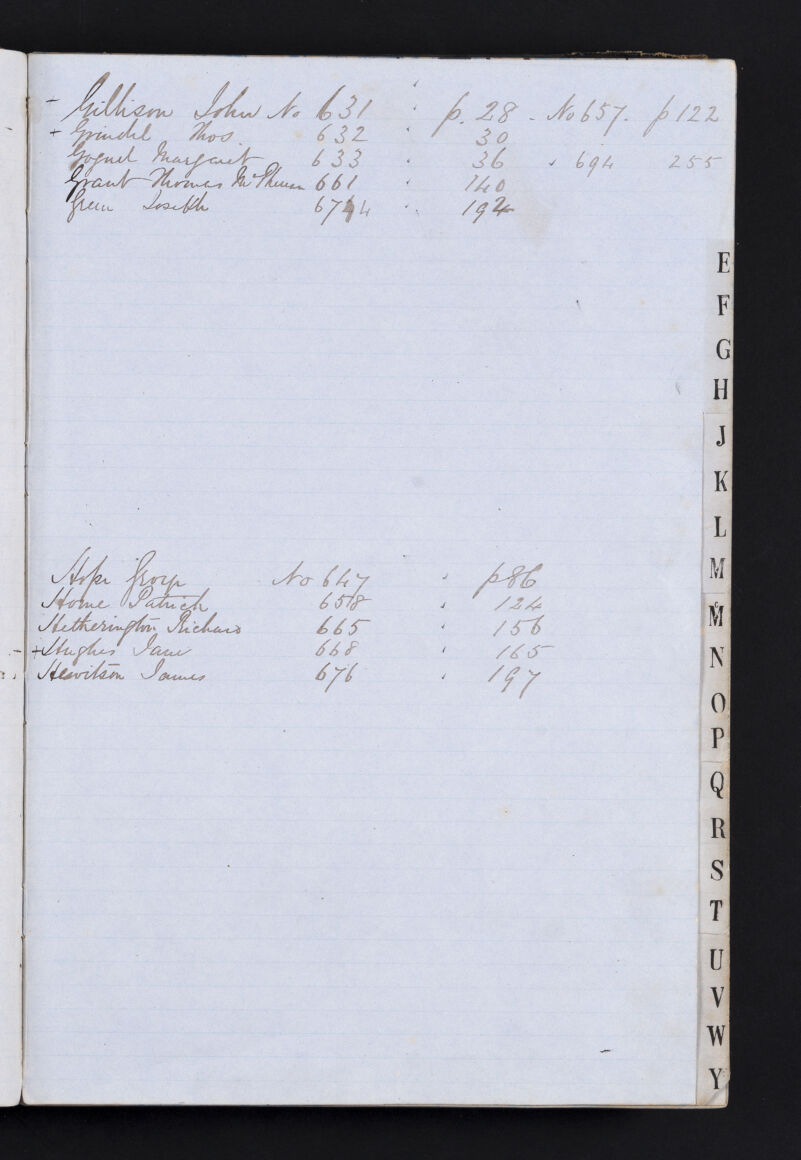 - Gillison John No 631 . p. 28 - No 657. p 122
+ Grindel Thos. 632 . 30
Goguel Margaret 633 . 36 . 694 255
Grant Thomas 661 . 140
Green Joseph 674 . 194
E
F
G
H
J
K
L
M
Mc
N
O
P
Q
R
S
T
U
V
W
Y
Hope George No 647 . p86
Horne Patrick 658 . 124
Hetherington Richard 665 . 156
+ Hughes Jane 668 . 165
Hewitson James 676 . 197